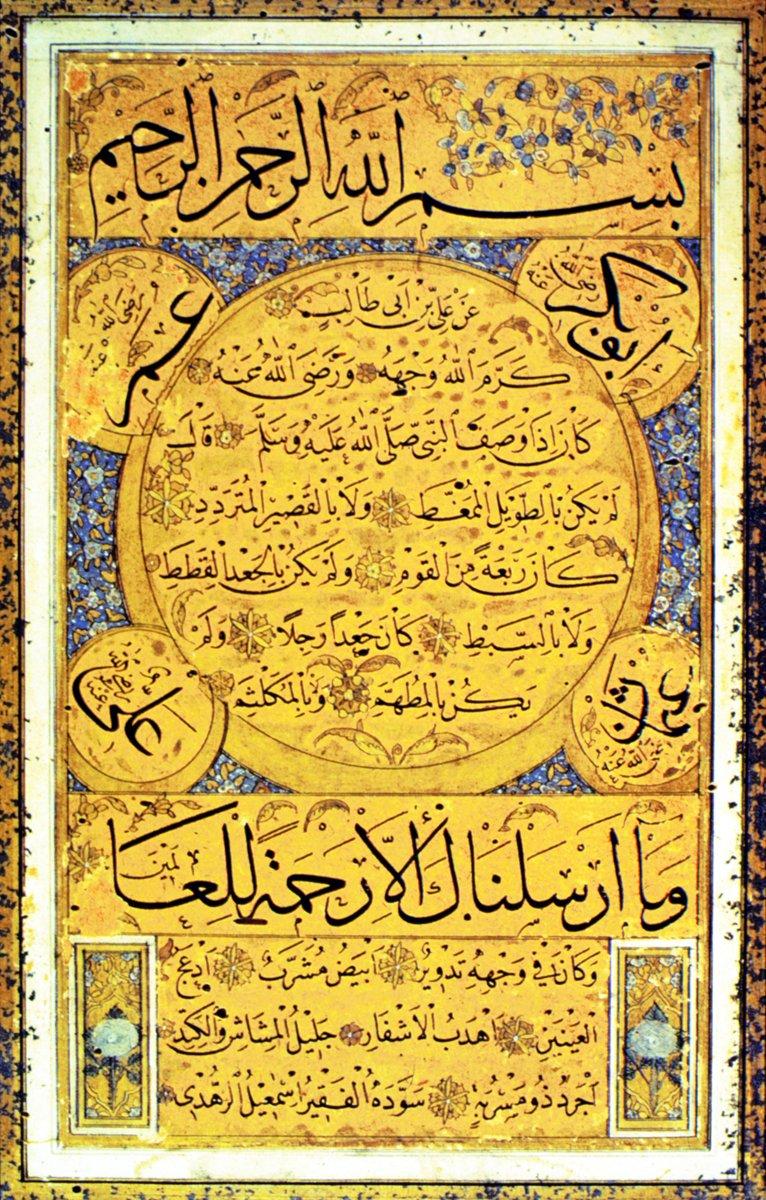 بسم الله الرحمن الرحيم
ابو بكر رضي الله عنه
عمر رضي الله عنه
عن علي بن ابي طالب
كرم الله وجهه ورضى الله عنه
كان اذا وصف النبي صلى الله عليه وسلم قال
لم يكن بالطويل الممغط ولا بالقصير المتردد
كان ربعة من القوم ولم يكن بالجعد القطط
ولا بالسبط كان جعدا رجلا ولم
يكن بالمطهم ولا بالمكلثم
عثمان رضي الله عنه
علي رضي الله عنه
وما ارسلناك الا رحمة للعالمين
وكان في وجهه تدوير ابيض مشرب ادعج
العينين اهدب الاشفار جليل المشاش والكتد
اجرد ذو مسربة سوده الفقير اسمعيل الزهدي